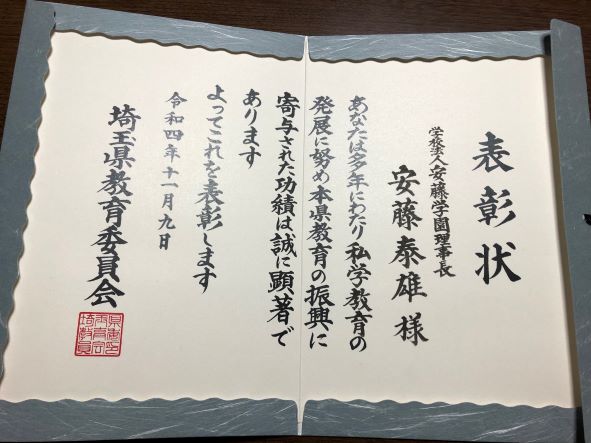 表彰状
学校法人安藤学園理事長
安藤泰雄様
あなたは多年にわたり私学教育の
発展に努め本県教育の振興に
寄与された功績は誠に顕著で
あります
よってこれを表彰します
令和四年十一月九日
埼玉県教育委員会